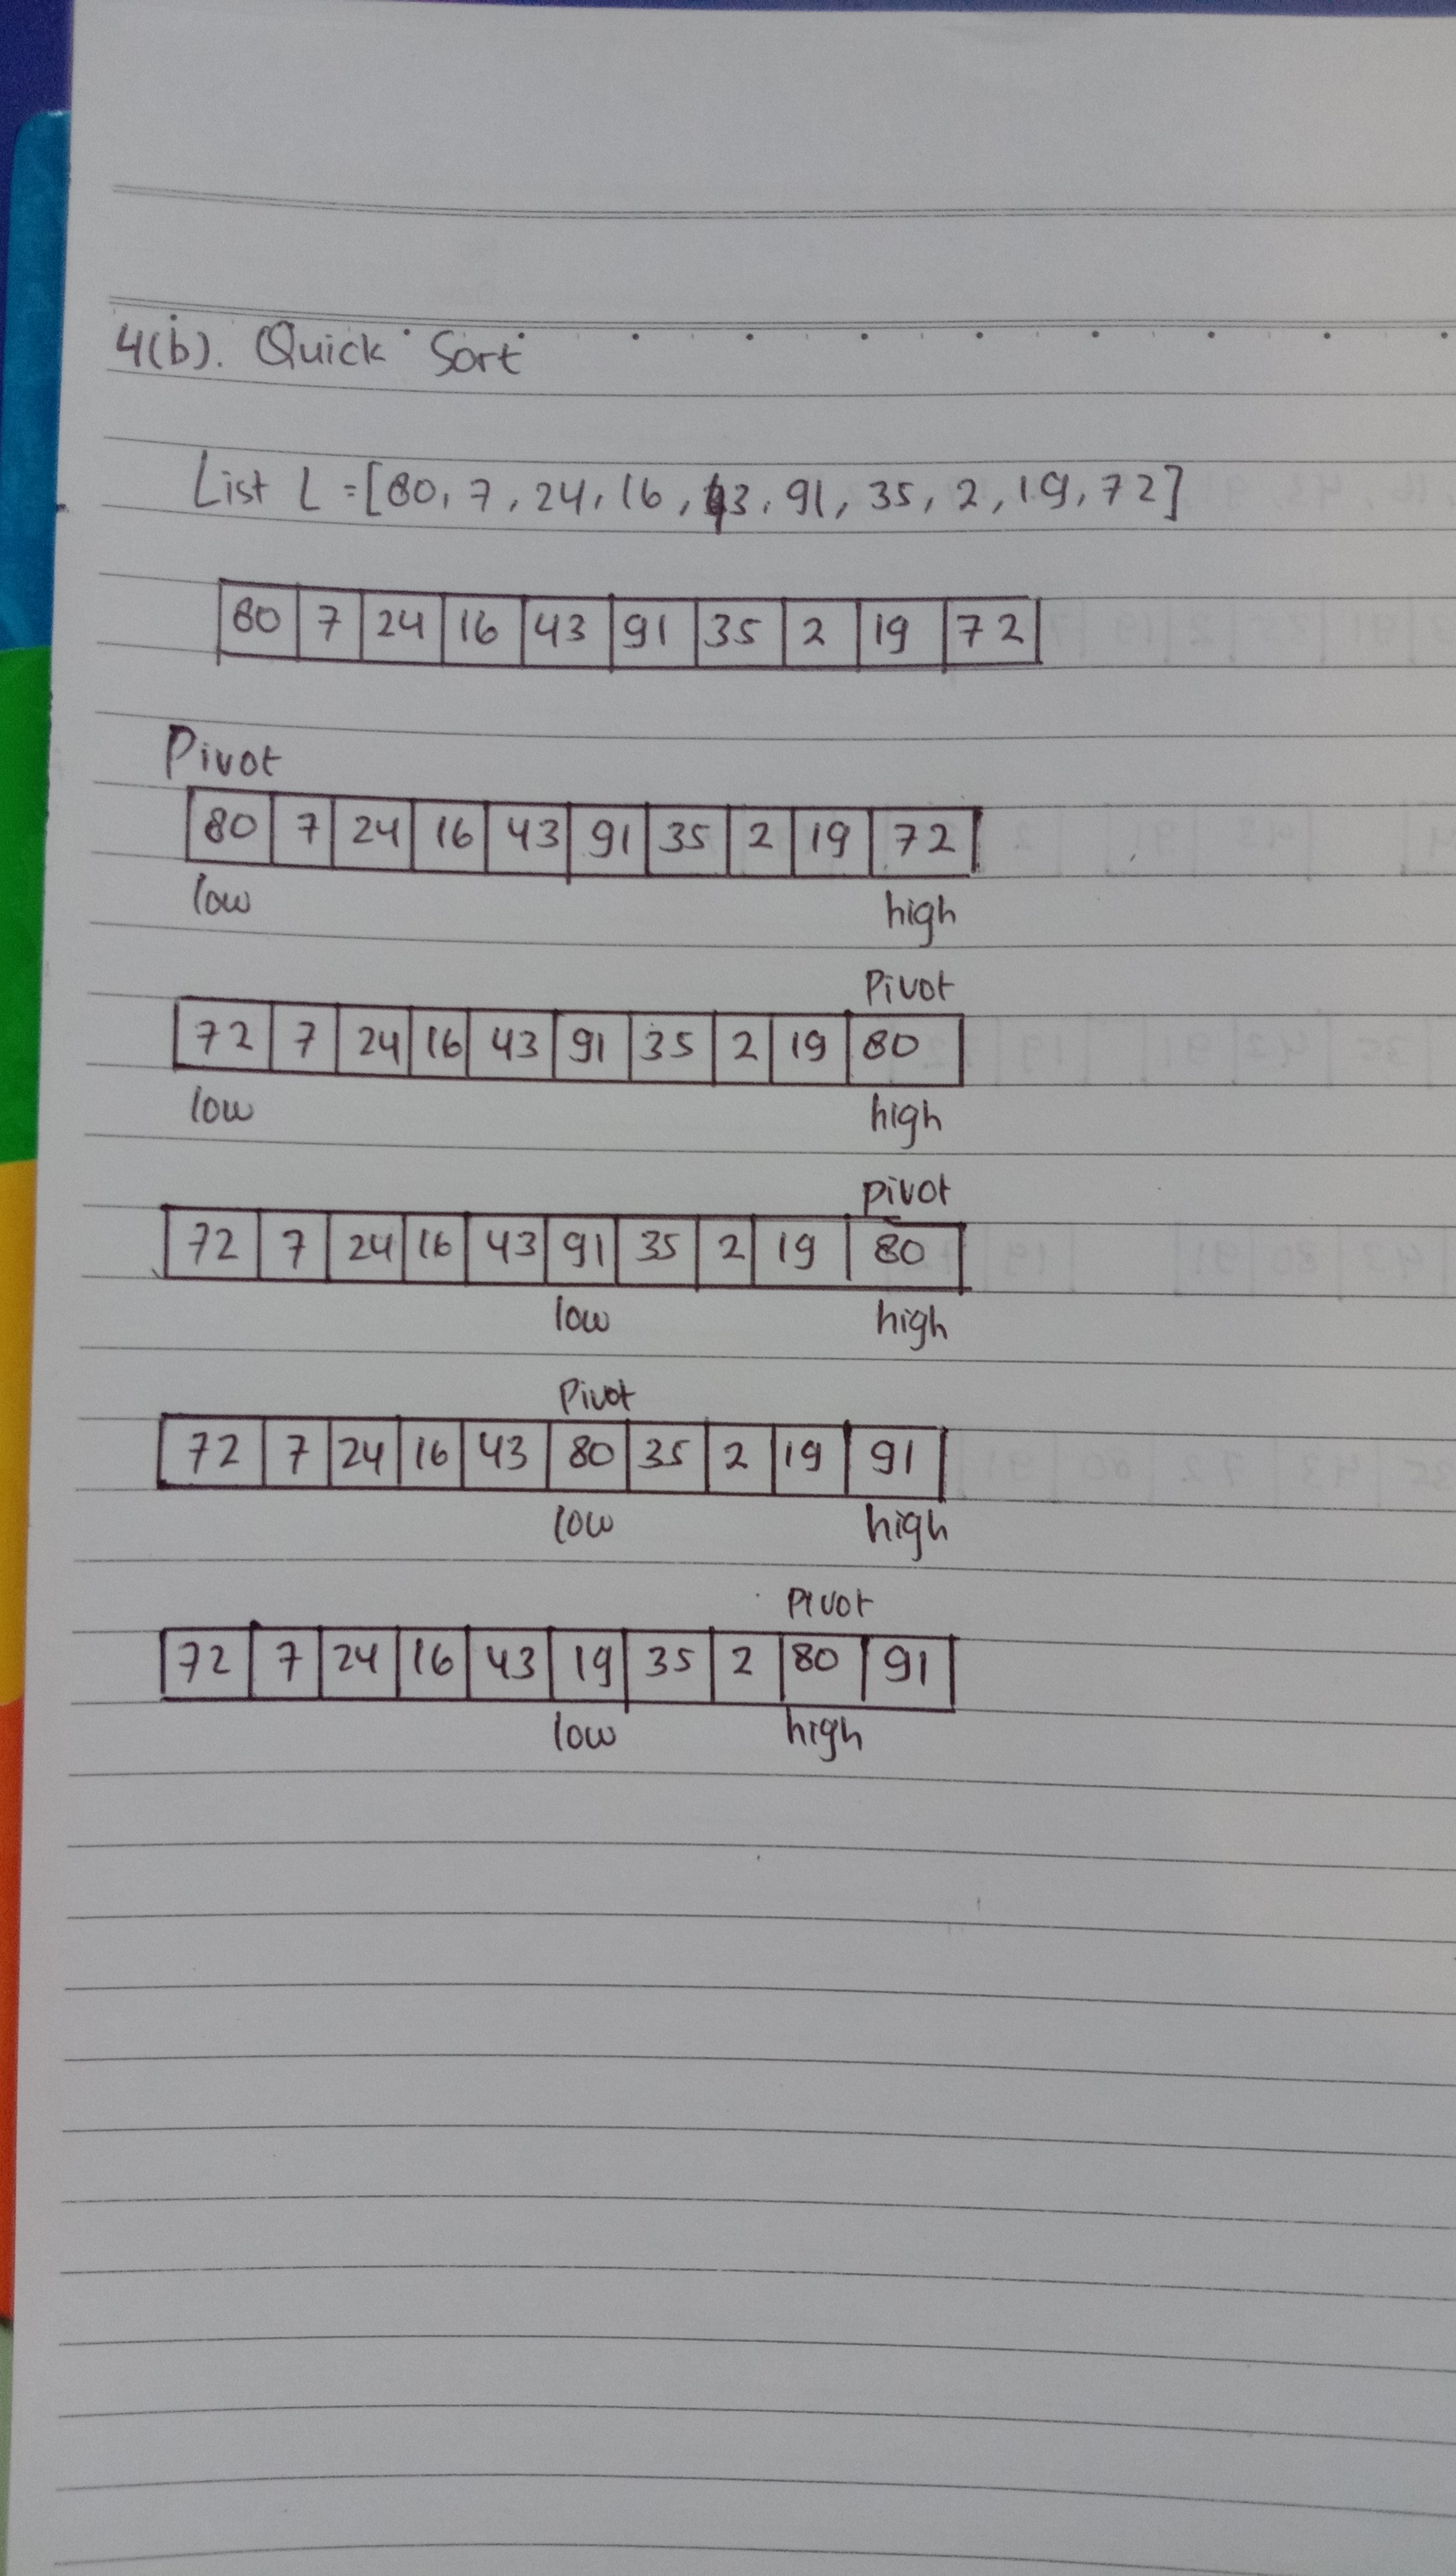 4(b). Quick Sort
List L = [80, 7, 24, 16, 43, 91, 35, 2, 19, 72]
80 7 24 16 43 91 35 2 19 72
Pivot
80 7 24 16 43 91 35 2 19 72
low high
Pivot
72 7 24 16 43 91 35 2 19 80
low high
pivot
72 7 24 16 43 91 35 2 19 80
low high
Pivot
72 7 24 16 43 80 35 2 19 91
low high
Pivot
72 7 24 16 43 19 35 2 80 91
low high